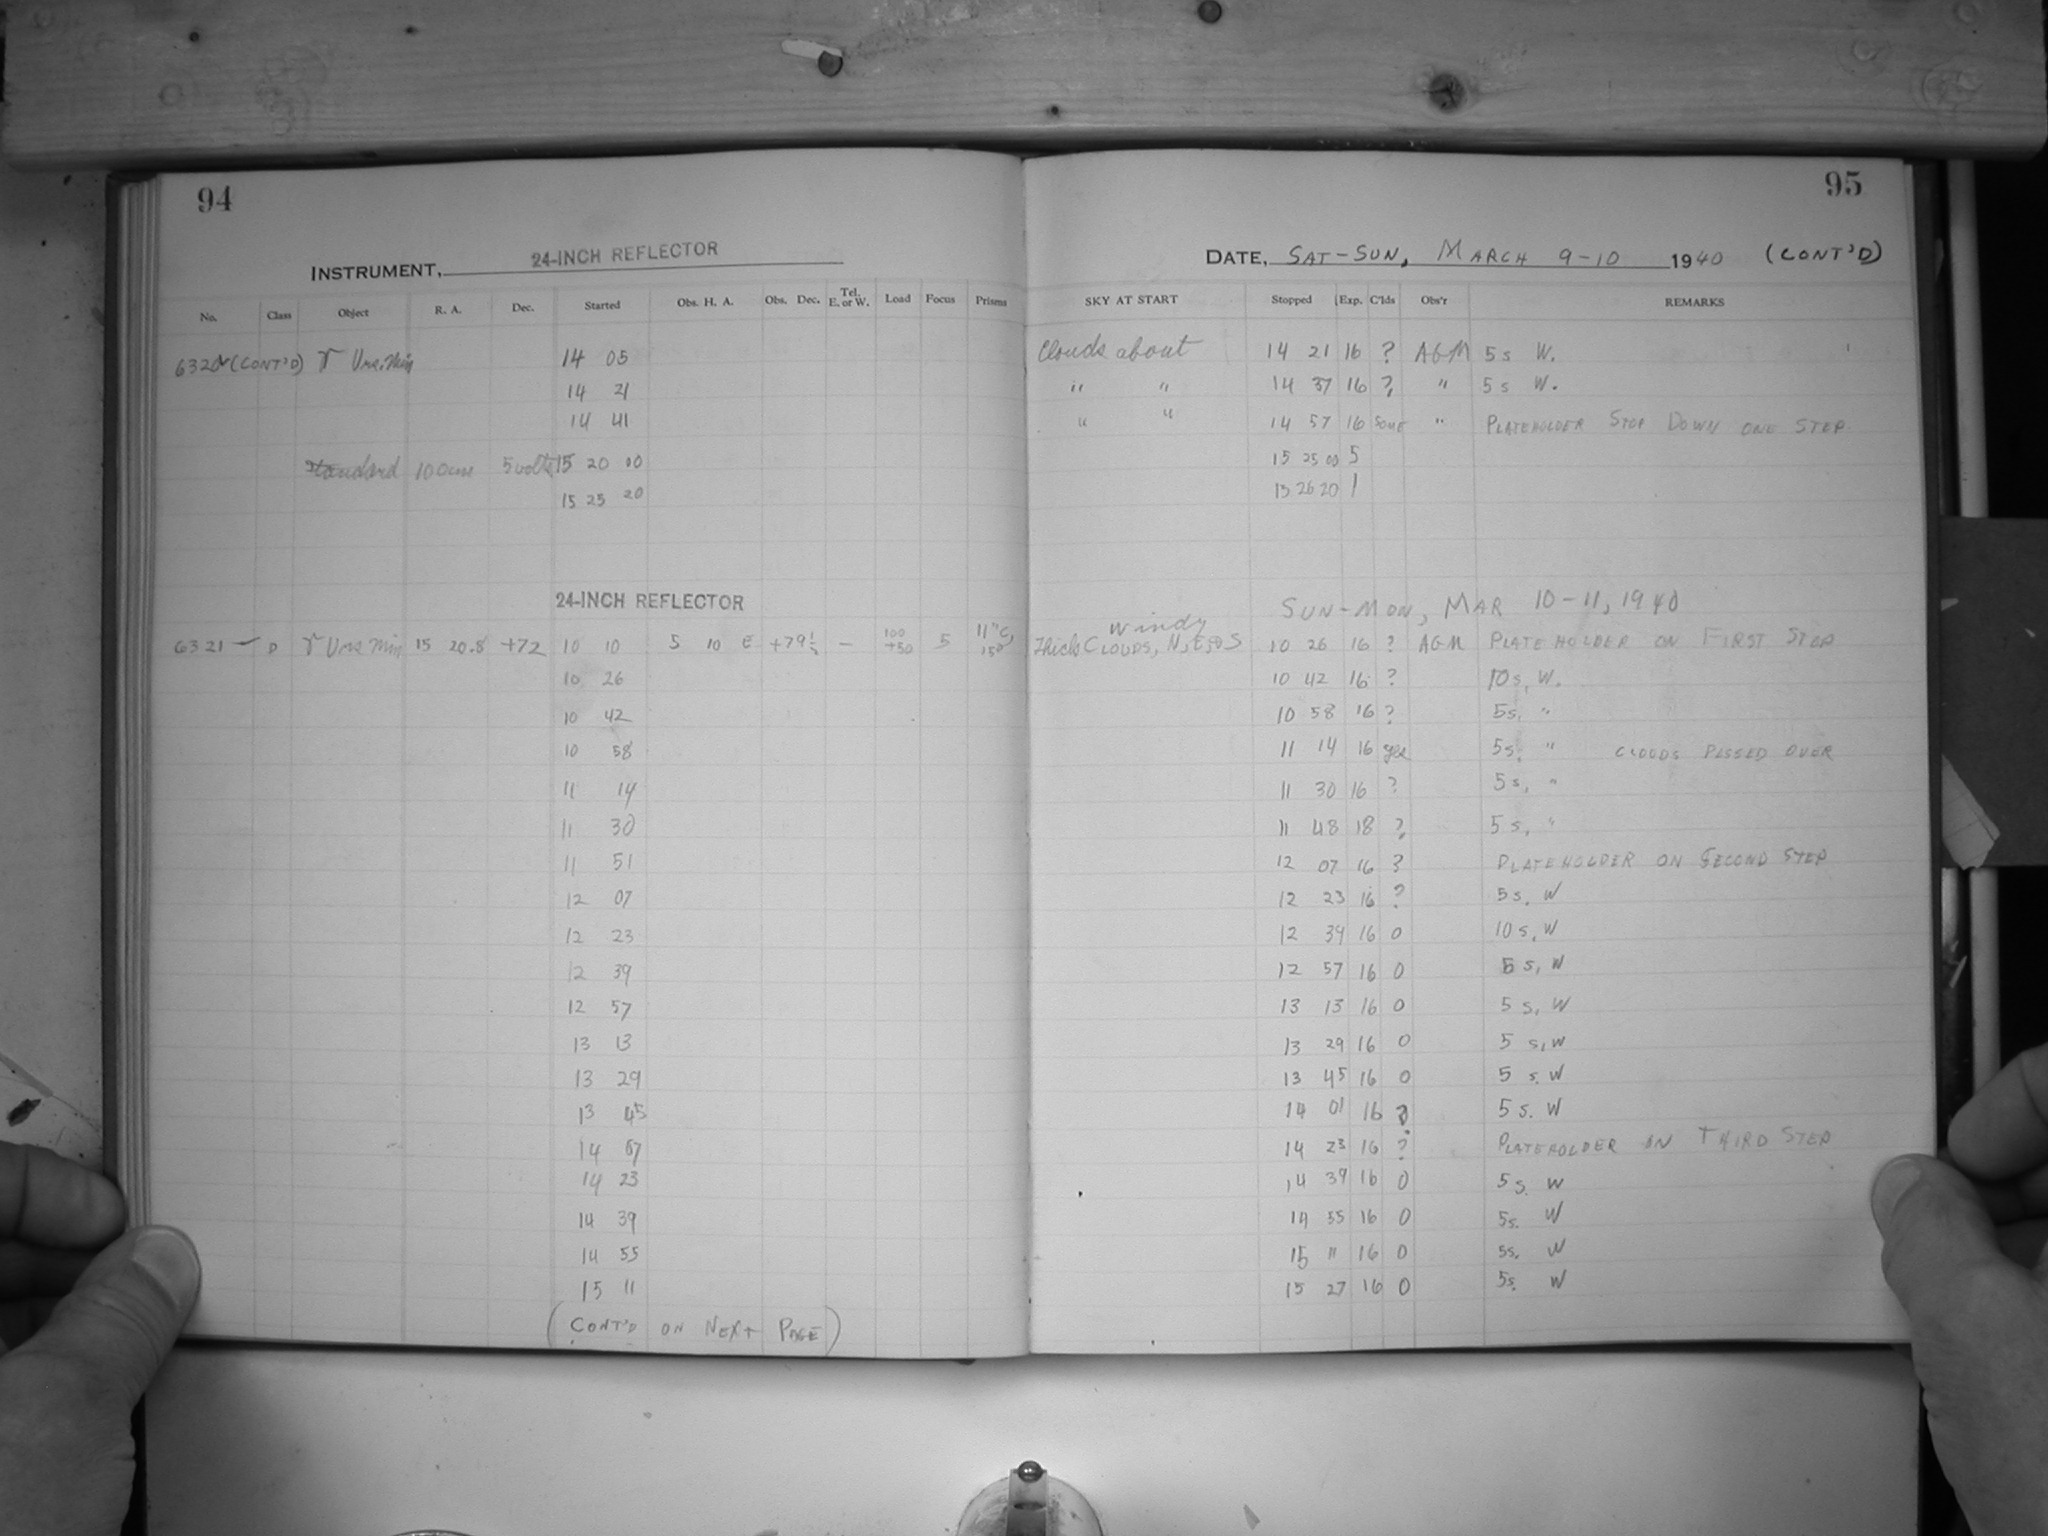 94
95
INSTRUMENT, 24-INCH REFLECTOR
DATE, SAT-SUN, MARCH 9-10 1940 (CONT'D)
No. Class Object R. A. Dec. Started Obs. H. A. Obs. Dec. Tel. E. or W. Load Focus Prisms SKY AT START Stopped Exp. C'lds Obs'r REMARKS
6320 (CONT'D) γ Urs. Min 14 05 Clouds about 14 21 16 ? AGM 5 s W.
14 21 " " 14 37 16 ? " 5 s W.
14 41 " " 14 57 16 SOME " PLATEHOLDER STOP DOWN ONE STEP
Standard 100 cm 5 volts 15 20 00 15 25 00 5
15 25 20 15 26 20 1
24-INCH REFLECTOR SUN-MON, MAR 10-11, 1940
windy
6321 D γ Urs Min 15 20.8 +72 10 10 5 10 E +79½ — 100 +50 5 11"C, 15° Thick CLOUDS, N, E, & S 10 26 16 ? AGM PLATEHOLDER ON FIRST STOP
10 26 10 42 16 ? 10 s, W.
10 42 10 58 16 ? 5s, "
10 58 11 14 16 yes 5s, " CLOUDS PASSED OVER
11 14 11 30 16 ? 5 s, "
11 30 11 48 18 ? 5 s, "
11 51 12 07 16 ? PLATEHOLDER ON SECOND STEP
12 07 12 23 16 ? 5 s, W
12 23 12 39 16 0 10 s, W
12 39 12 57 16 0 5 s, W
12 57 13 13 16 0 5 s, W
13 13 13 29 16 0 5 s, W
13 29 13 45 16 0 5 s. W
13 45 14 01 16 ? 5 s. W
14 07 14 23 16 ? PLATEHOLDER ON THIRD STEP
14 23 14 39 16 0 5 s. W
14 39 14 55 16 0 5s. W
14 55 15 11 16 0 5s. W
15 11 15 27 16 0 5s. W
(CONT'D ON NEXT PAGE)